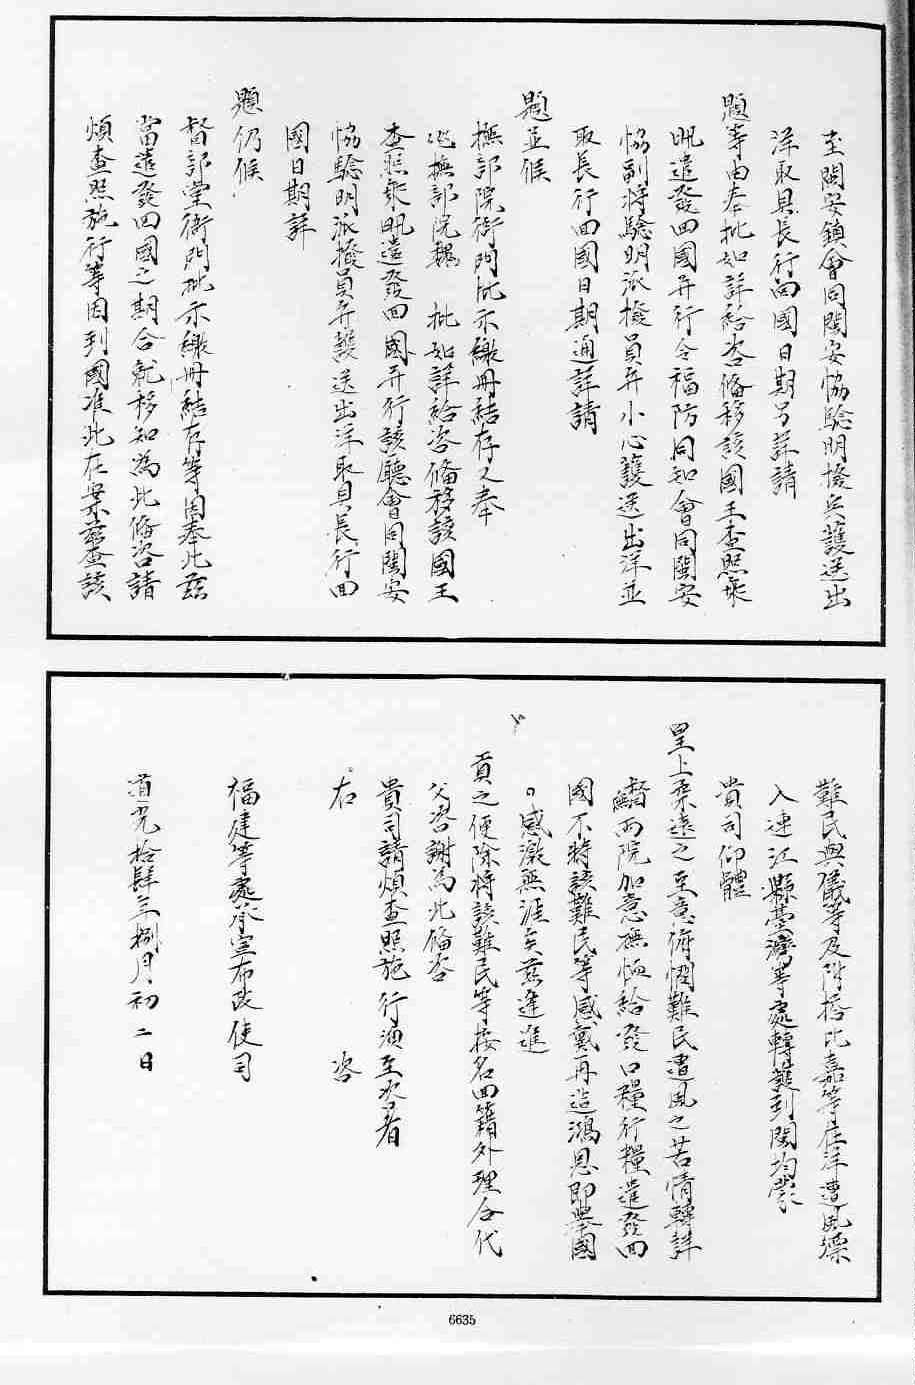 至閩安鎮會同閩安協驗明撥兵護送出
洋取具長行回國日期另詳請
題等由奉批如詳給咨俻移該國王查照乘
帆遣發回國并行令福防同知會同閩安
協副將驗明派撥員弁小心護送出洋並
取長行回國日期通詳請
題並候
撫部院衙門批示繳冊結存又奉
撫部院魏 批如詳給咨俻移該國王
查照乘帆遣發回國并行該廳會同閩安
協驗明派撥員弁護送出洋取具長行回
國日期詳
題仍候
督部堂衙門批示繳冊結存等因奉此茲
當遣發回國之期合就移知為此俻咨請
煩查照施行等因到國准此在案茲查該
難民與儀等及附搭比嘉等在洋遭風漂
入連江縣臺灣等處轉護到閩均蒙
貴司仰體
皇上柔遠之至意俯憫難民遭風之苦情轉詳
督兩院加意撫恤給發口糧行糧遣發回
國不特該難民等感戴再造鴻恩即舉國
感激無涯矣茲逢進
貢之便除將該難民等按名回籍外理合代
父咨謝為此俻咨
貴司請煩查照施行湏至咨者
右 咨
福建等處承宣布政使司
道光拾肆年捌月初二日
6635